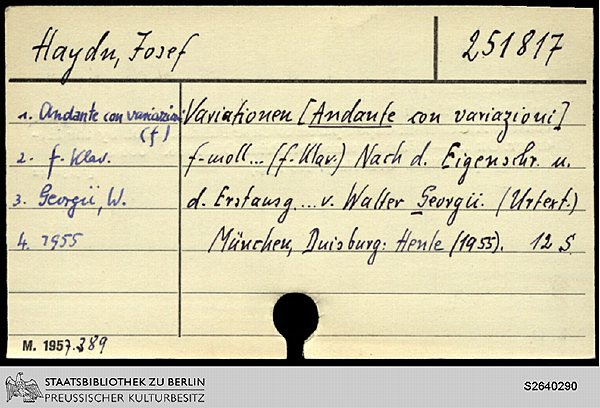 Haydn, Josef
251817
1. Andante con variazioni (f)
2. f. Klav.
3. Georgii, W.
4. 1955
Variationen [Andante con variazioni]
f-moll... (f. Klav.) Nach d. Eigenschr. u.
d. Erstausg.... v. Walter Georgii. (Urtext.)
München, Duisburg: Henle (1955). 12 S.
M. 1957.389
STAATSBIBLIOTHEK ZU BERLIN
PREUSSISCHER KULTURBESITZ
S2640290